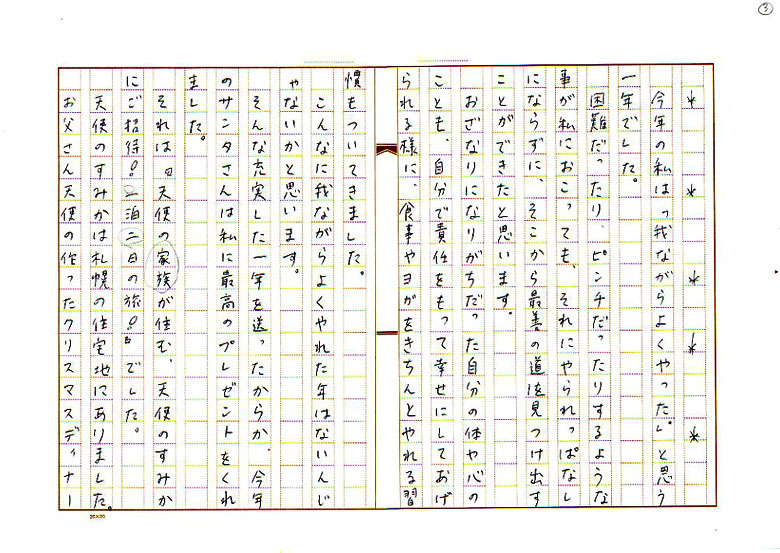 ③
＊　＊　＊　＊　＊
今年の私は“我ながらよくやった”と思う
一年でした。
困難だったり、ピンチだったりするような
事が私におこっても、それにやられっぱなし
にならずに、そこから最善の道を見つけ出す
ことができたと思います。
おざなりになりがちだった自分の体や心の
ことも、自分で責任をもって幸せにしてあげ
られる様に、食事やヨガをきちんとやれる習
慣もついてきました。
こんなに我ながらよくやれた年はないんじ
ゃないかと思います。
そんな充実した一年を送ったからか、今年
のサンタさんは私に最高のプレゼントをくれ
ました。
それは『天使の家族が住む、天使のすみか
にご招待！二泊三日の旅！』でした。
天使のすみかは札幌の住宅地にありました。
お父さん天使の作ったクリスマスディナー
20×20